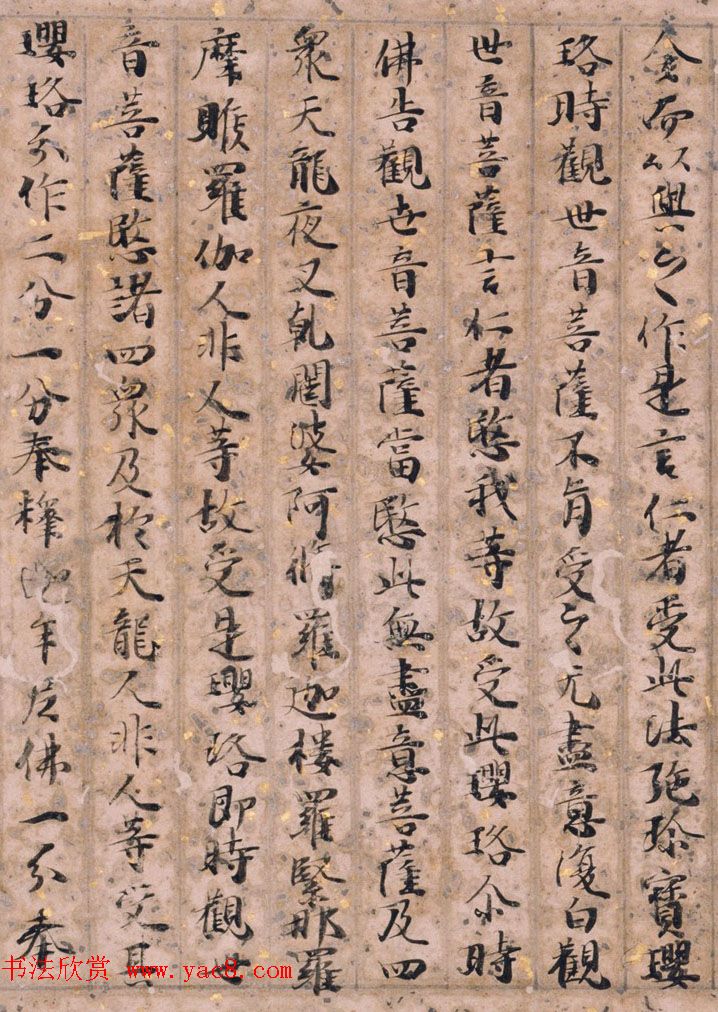 金而以與之作是言仁者受此法施珍寶瓔
珞時觀世音菩薩不肯受之无盡意復白觀
世音菩薩言仁者愍我等故受此瓔珞尒時
佛告觀世音菩薩當愍此無盡意菩薩及四
眾天龍夜叉乹闥婆阿脩羅迦樓羅緊那羅
摩睺羅伽人非人等故受是瓔珞即時觀世
音菩薩愍諸四眾及於天龍人非人等受其
瓔珞分作二分一分奉釋迦牟尼佛一分奉
书法欣赏 www.yac8.com